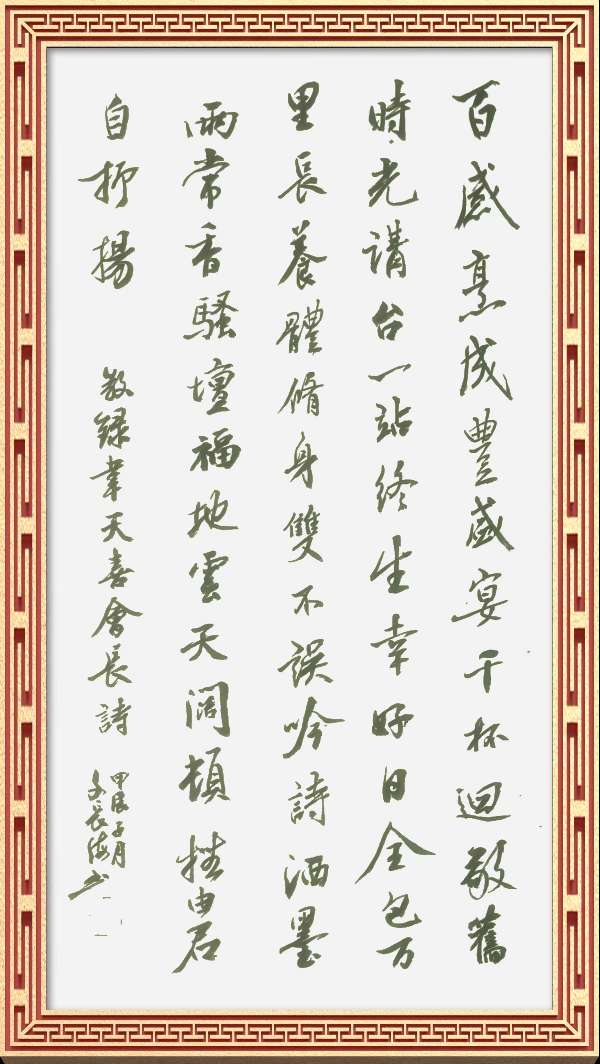 百感烹成豐盛宴千杯迴敬舊
時光講台一站終生幸好日全包万
里長養體脩身雙不誤吟詩洒墨
兩常香騷壇福地雲天闊頓挫由君
自抑揚
敬録韋天喜會長詩
甲辰子月
長海书